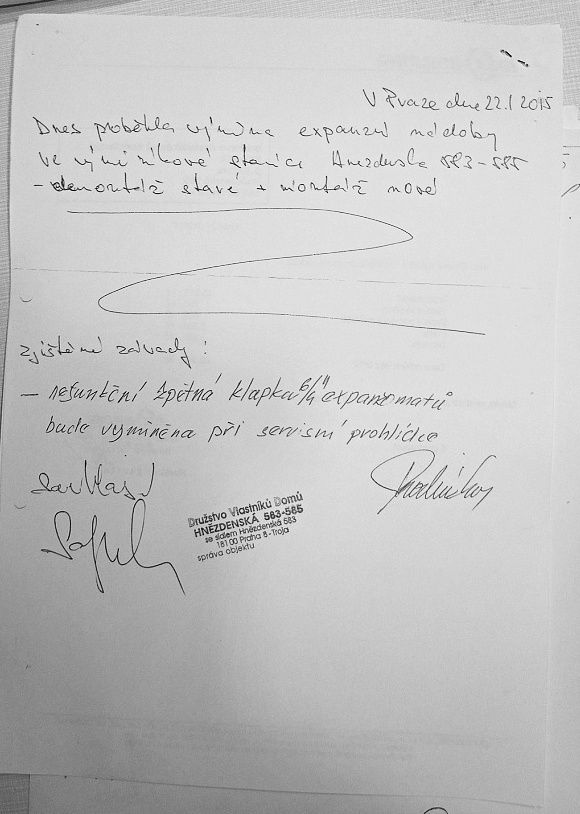 V Praze dne 22.1 2015
Dnes proběhla výměna expanzní nádoby
ve výměníkové stanice Hnězdenska 583-585
- demontáž staré + montáž nové
zjištěné závady :
- nefunkční zpětná klapka 6/4" expanzomatů
bude vyměněna při servisní prohlídce
Družstvo Vlastníků Domů
HNĚZDENSKÁ 583-585
se sídlem Hnězdenská 583
181 00 Praha 8 - Troja
správa objektu